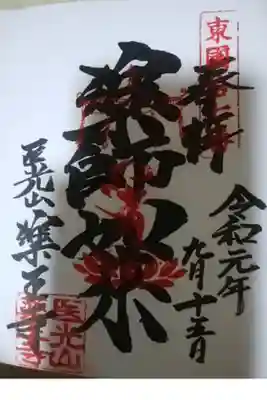 奉拝
令和元年
九月十五日
薬師如来
医光山 薬王寺
医光山
薬王寺